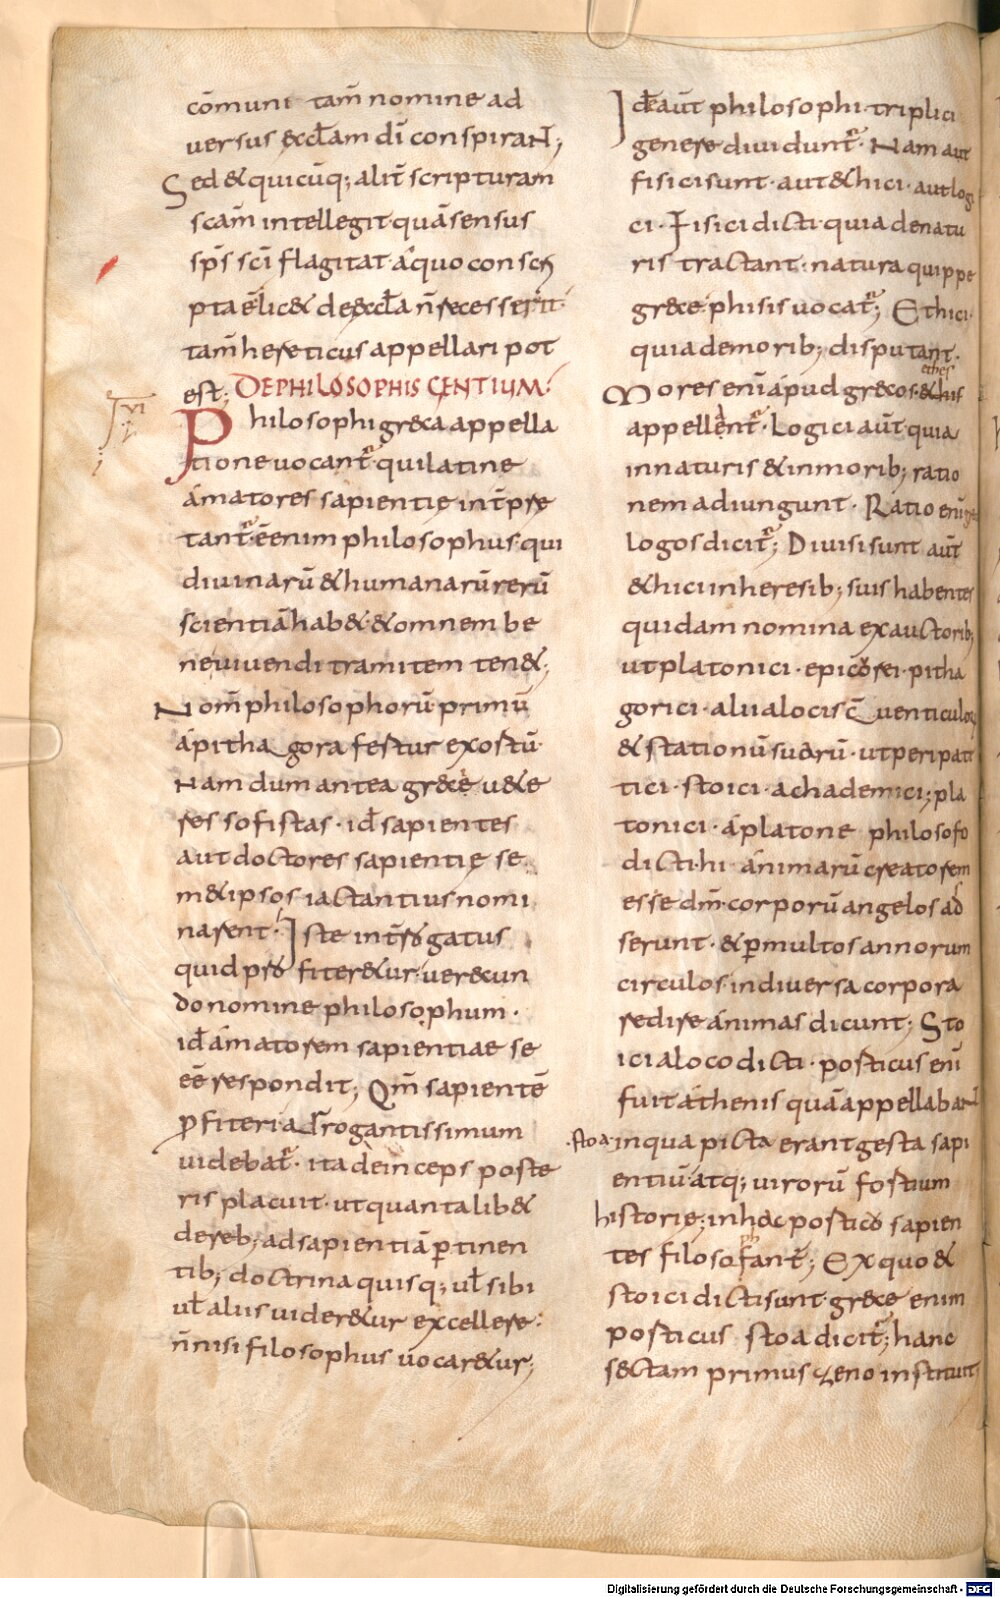 cōmuni tam̄ nomine ad
uersus &cctam dī conspiraN̄;
Sed & quicūq; alit̄ scripturam
scam̄ intellegit quā sensus
sp̄s sc̄i flagitat áquo conscri
pta
tam̄ hereticus appellari pot
est; DE PHILOSOPHIS GENTIUM.
VI
Philosophi greca appella
tione uocant̄ qui latine
ámatores sapientię int̄pre
tant̄ ēenim philosophus qui
diuinarū & humanarū rerū
scientiā hab& & omnem be
neuiuendi tramitem ten&;
Nom̄ philosophorū primū
ápithagora fertur exostū
Nam dum antea grece u&e
res sofistas · id̄ sapientes
aut doctores sapientię se
m&ipsos iactantius nomi
narent · Iste int̄rogatus
quid profiter&ur uerecun
do nomine philosophum ·
id̄ ámatorem sapientiae se
eē respondit; Qm̄ sapientē
ꝓfiteri adrrogantissimum
uidebat̄ · ita deinceps poste
ris placuit · ut quantalib&
dereb; ad sapientiā ꝑtinen
tib; doctrina quisq; ul̄ sibi
ul̄ aliis uider&ur excellere ·
n̄nisi filosophus uocar&ur;
Ide aūt philosophi · triplici
genere diuidunt̄ · Nam aut
fisici sunt · aut &hici · aut logi
ci · Fisici dicti quia denatu
ris tractant : natura quippe
grece phisis uocat̄; Ethici ·
quia demorib; disputant ·
ethes
Mores enī ápud grecos &his
appellent̄ · Logici aūt quia
innaturis & inmorib; ratio
nem adiungunt · Ratio enī
logos dicit̄; Diuisi sunt aūt
&hi ci inheresib; suis habentes
quidam nomina exauctorib;
ut platonici · epicorei · pitha
gorici · alii alocis c̄uenticulor
& stationū suarū · ut peripat
tici · stoici · achademici; pla
tonici · áplatone philosofo
dicti · hi ánimarū creatorem
esse dm̄ · corporū angelos ad
serunt · & ꝑ multos annorum
circulos · indiuersa corpora
redire ánimas dicunt; Sto
ici aloco dicti · posticus enī
fuit áthenis quā appellabaN̄
·stoa· inqua picta erant gesta sapi
entiū atq; uirorū fostium
historię; inhac postico sapien
ph
tes filosofant̄; Ex quo &
stoici dicti sunt · grece enim
posticus stoa dicit̄; hanc
sectam primus zeno instituit
Digitalisierung gefördert durch die Deutsche Forschungsgemeinschaft - DFG